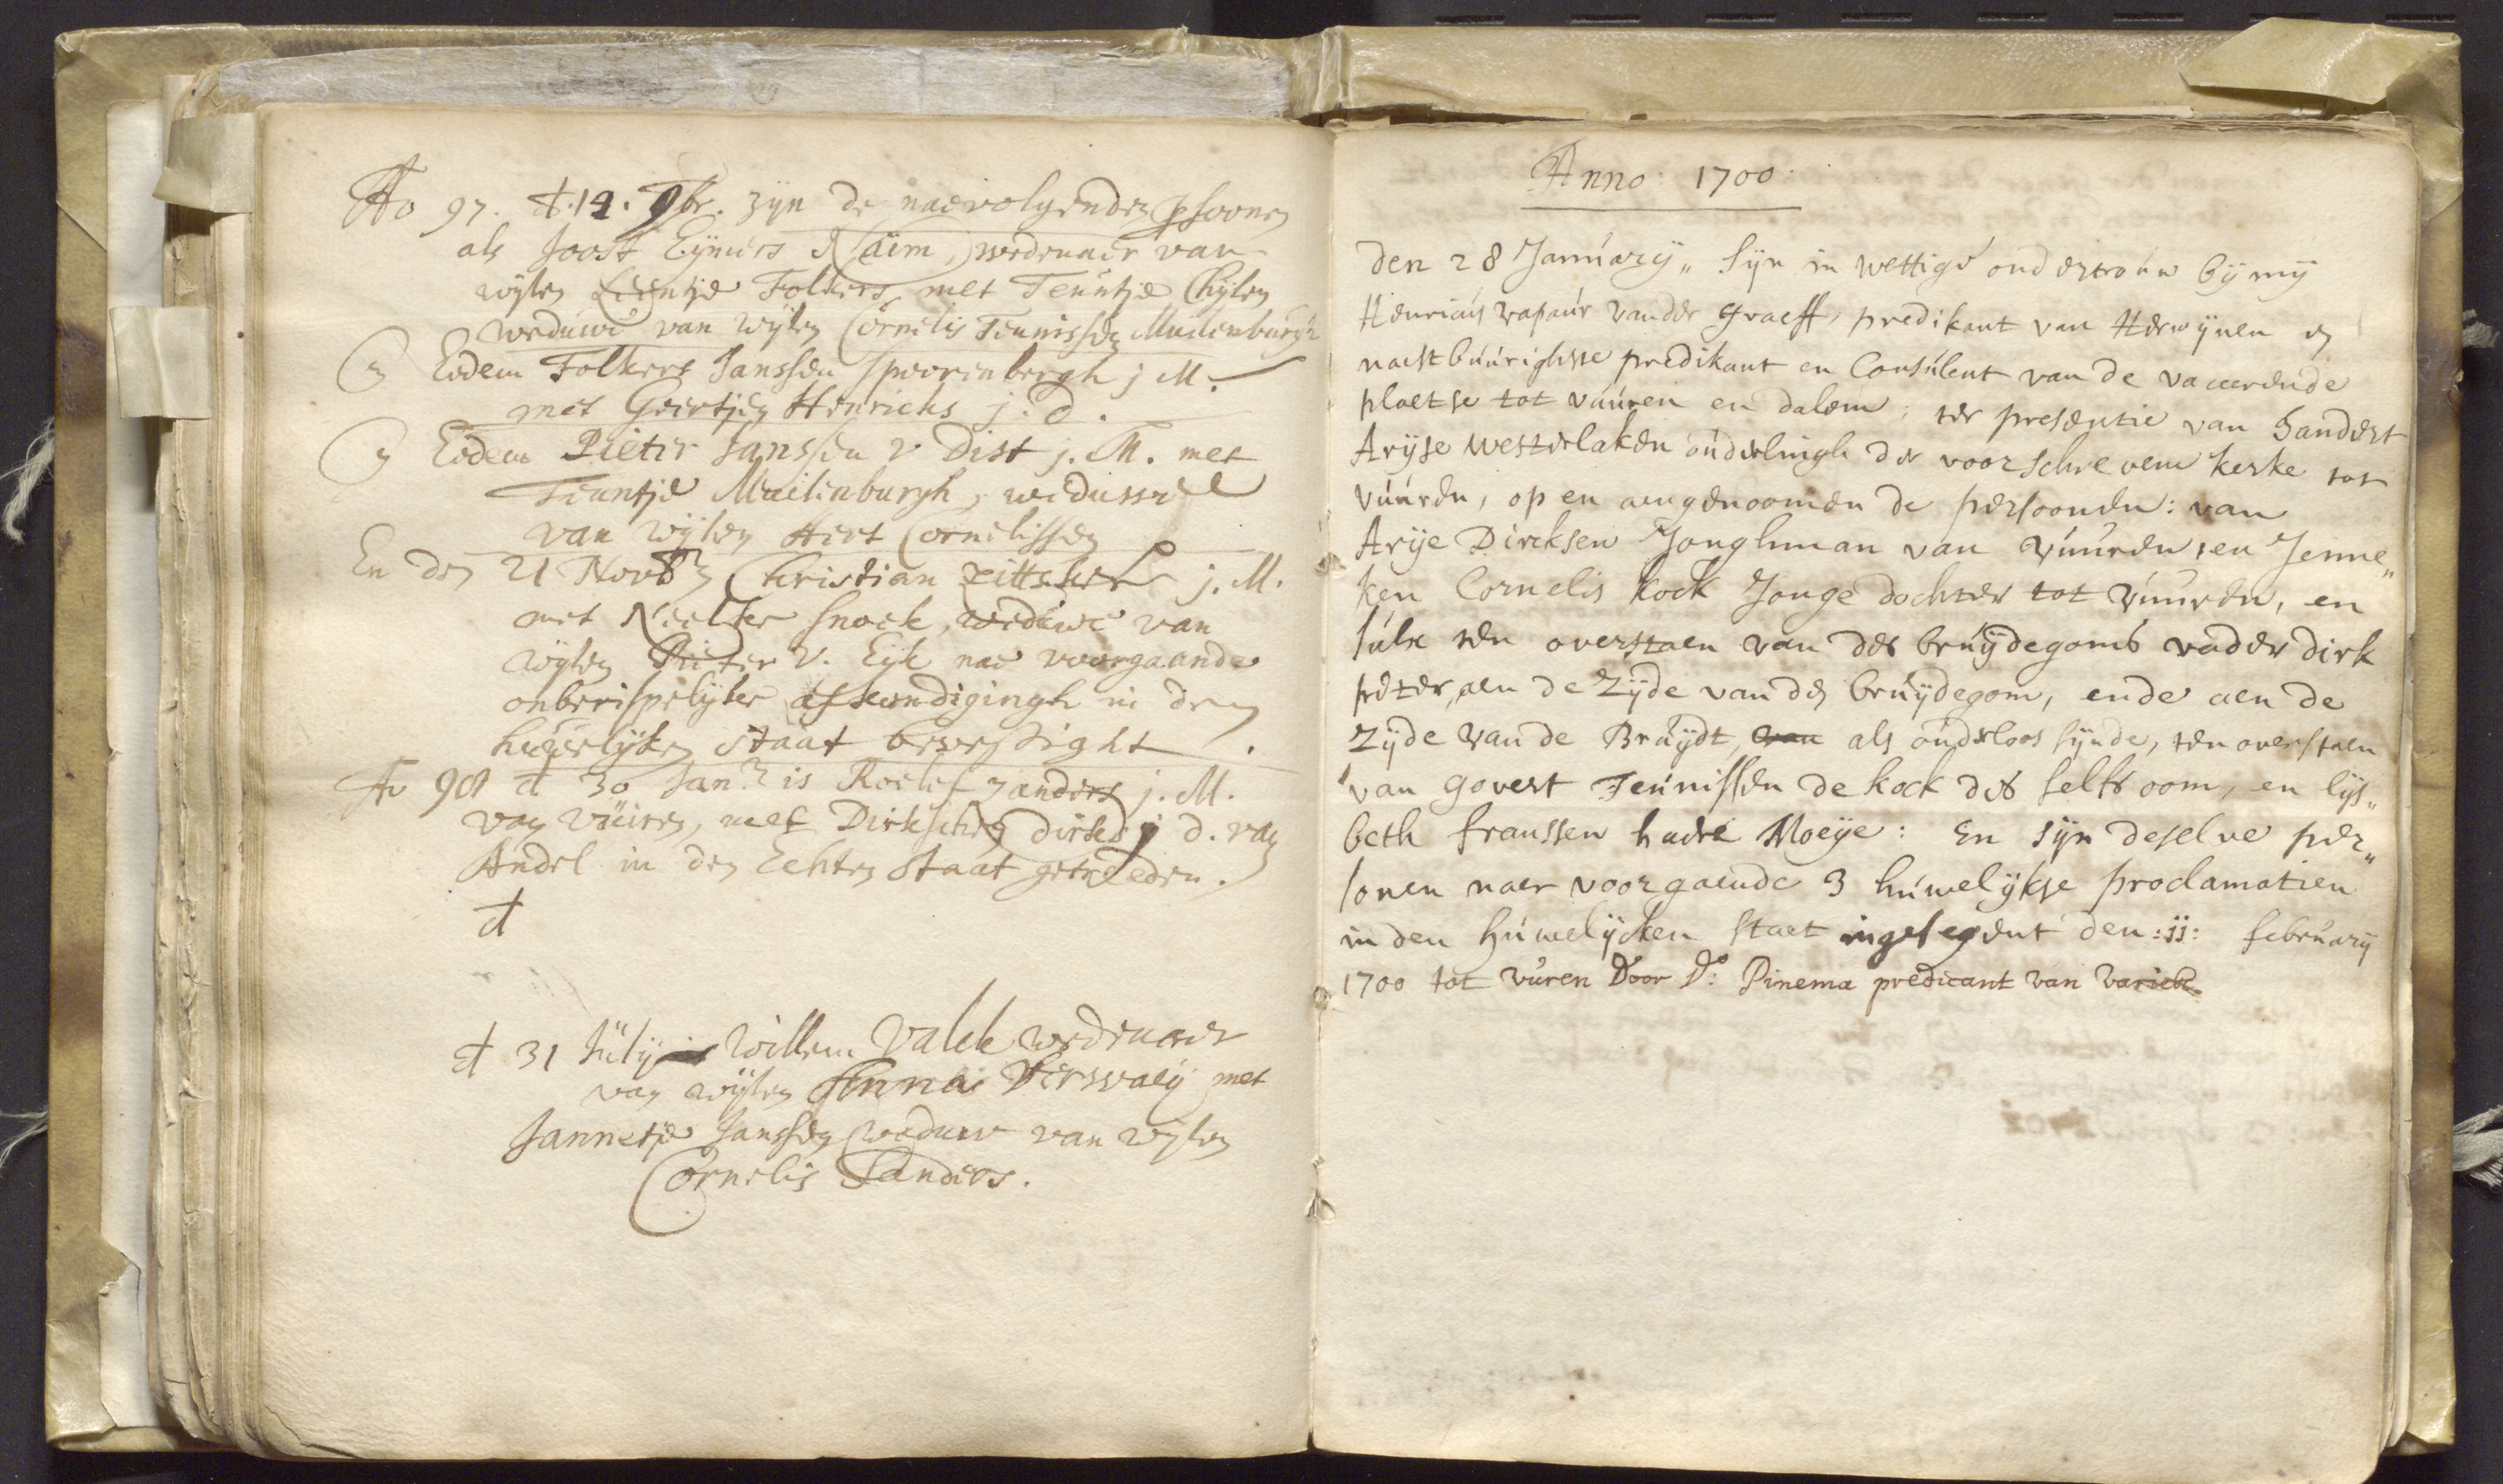 Ao 97. d. 14. 9br. zyn de naevolgenden psoonen
als Joost Eymers Naüm, wedunaer van
wylen Leentje Folkers met Teuntje Chylen
weduwe van wylen Cornelis Teunissen Muilenburgh
En Eodem Folkert Janssen spoorenbergh j M.
met Geertjen Henricks j. d.
En Eodem Pieter Janssen v Dist j. M. met
Teuntje Muilenburgh, weduwe
van wylen Hert Cornelissen
En den 21 Novbr Christian j. M.
met Neeltke Snoek, weduwe van
wylen Pieter V. Eyk nae voorgaande
onberispelyke afkundigingh in den
huwelyken staat bevestight.
Ao 98 d 30 Janr is Roelof zanders j. M.
van vüiren, met Dirkschen dirks j d. van
Andel in den Echten staat getreden.
d
d 31 Jüly is Willem Valck weduwaer
van wylen Anna Verswaey met
Jannetje Janssen weduwe van wylen
Cornelis Sanders.
Anno: 1700:
den 28 January„ syn in wettige ondertrouw by my
Henricus vander Graeff, predikant van Herwynen en
naestbuurighste predikant en Consulent van de vacerende
plaetse tot vuuren en dalem; ter presentie van Sandert
Aryse westerlaken ouderlingh der voorschrevene kerke tot
vuuren, op en aengenoomen de persoonen: van
Arye Dircksen Jonghman van vuuren, en Jenne„
ken Cornelis kock Jonge dochter tot vuuren, en
sulx ten overstaen van des bruydegoms vader dirk
peter, aen de zyde van den bruydegom, ende aen de
zyde van de Bruydt, van als ouderloos synde, ten overstaen
van govert Teunissen de kock des selfs oom, en lys„
beth franssen haere Moeye: En syn deselve per„
sonen naer voorgaende 3 huwelykse proclamatien
in den huwelycken staet ingesegent den :11: february
1700 tot vuren Door Do: Pinema predicant van varick